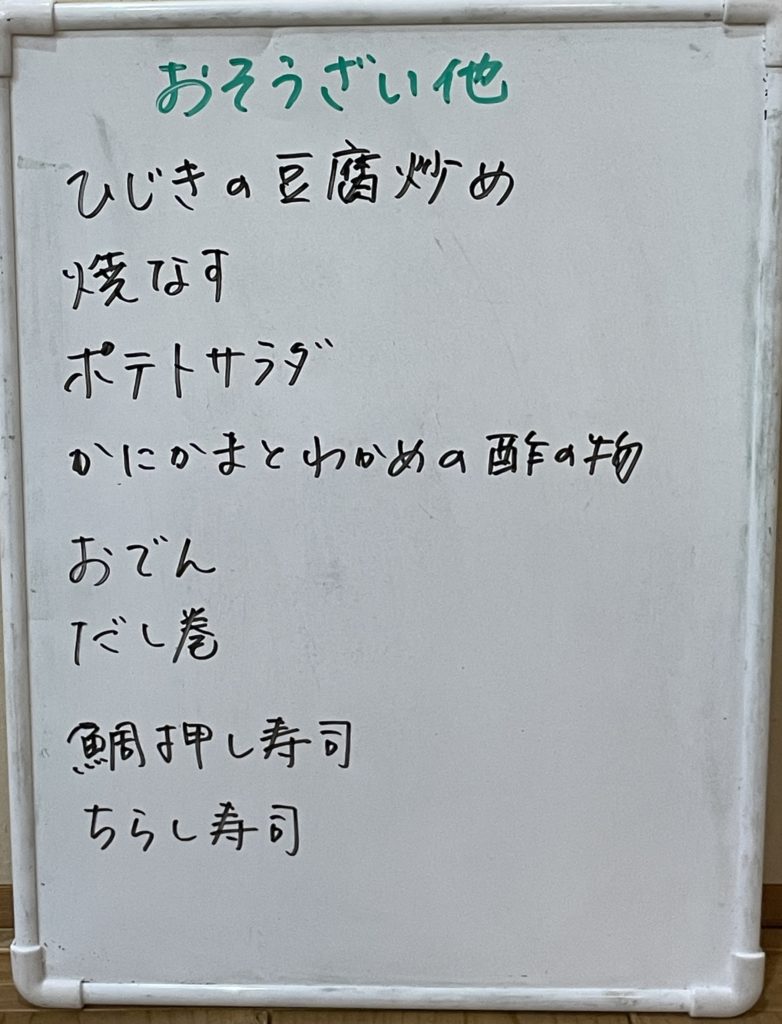 おそうざい他
ひじきの豆腐炒め
焼なす
ポテトサラダ
かにかまとわかめの酢の物
おでん
だし巻
鯛押し寿司
ちらし寿司